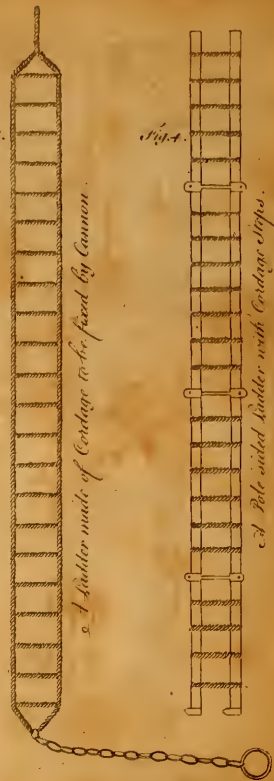 A Ladder made of Cordage to be fixed by Cannon.
Fig. 4.
A Pole sided Ladder with Cordage Steps.